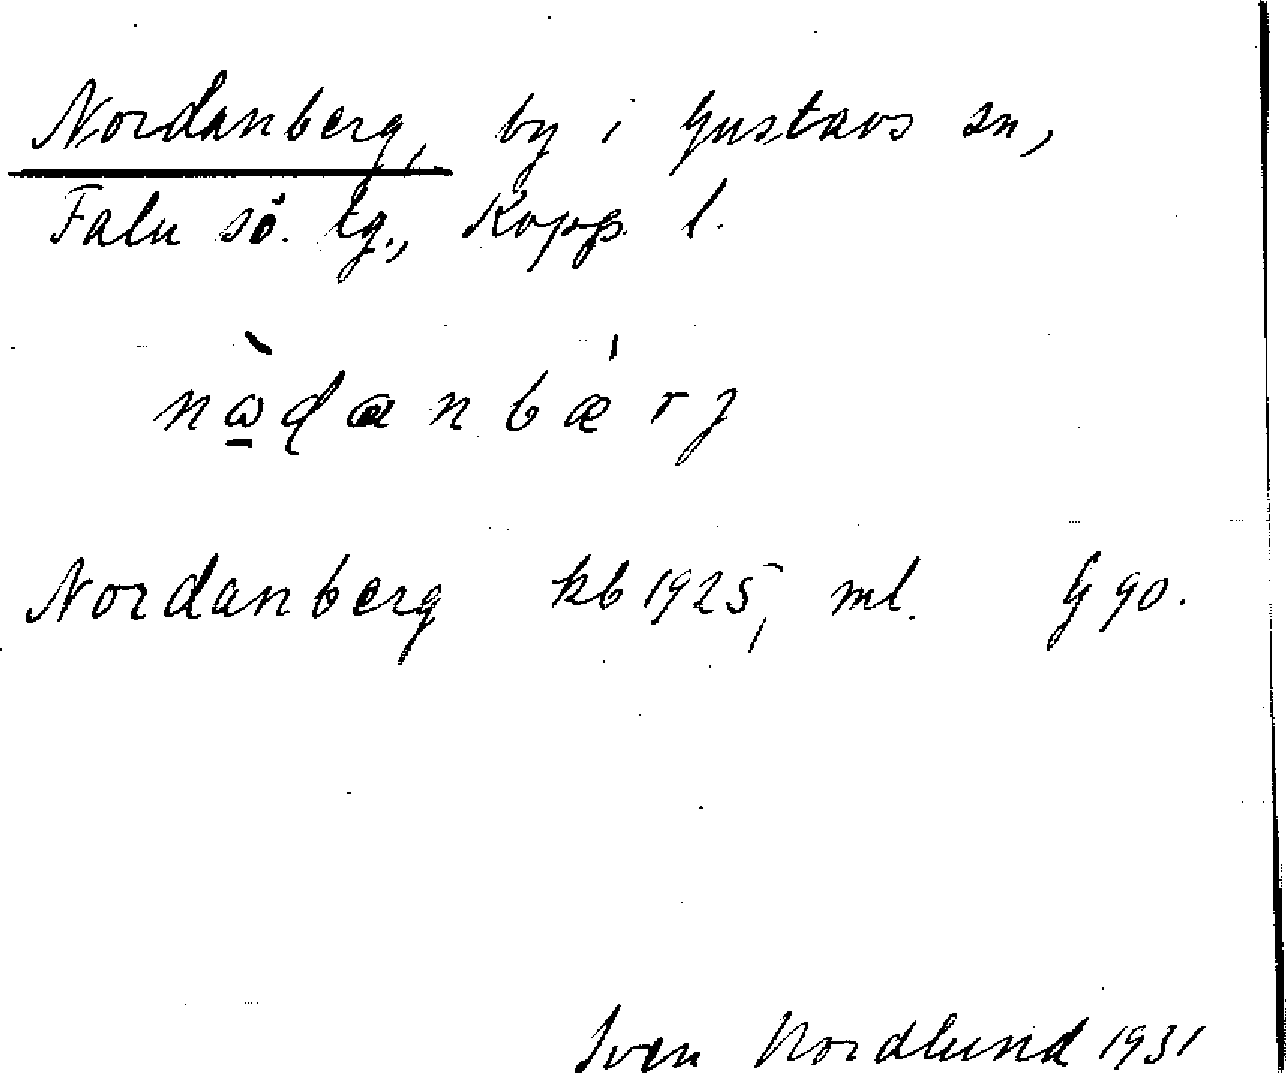 Nordanberg, by i Gustavs sn,
Falu sö. tg., Kopp. l.
nὼ̲ɖanbæ̍rj
Nordanberg kb 1925, ml. G 90.
Sven Nordlund 1931